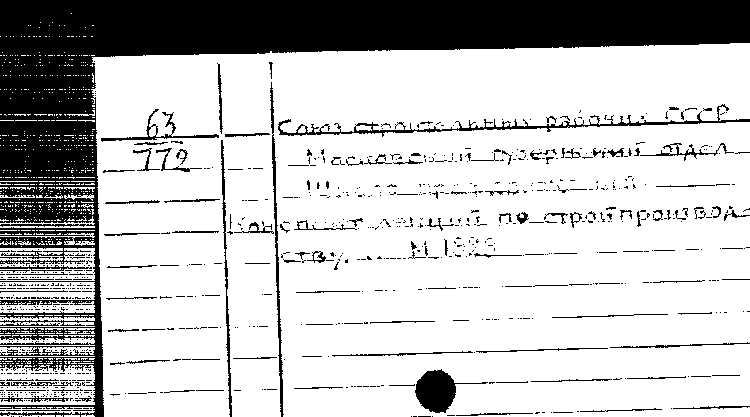 63
772
Союз строительных рабочих СССР
Московский губернский отдел
Школа
Конспект лекций по стройпроизвод-
ству. ... М 1929